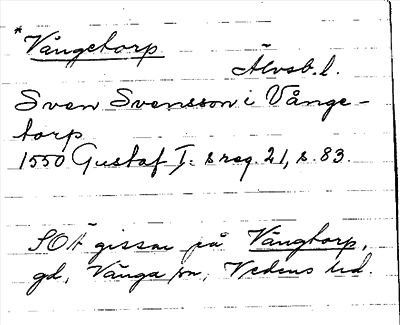 *Vångetorp
Älvsb. l.
Sven Svensson i Vånge-
torp
1550 Gustaf I:s reg. 21, s. 83.
SOÄ gissar på Vångtorp,
gd, Vånga sn, Vedens hd.